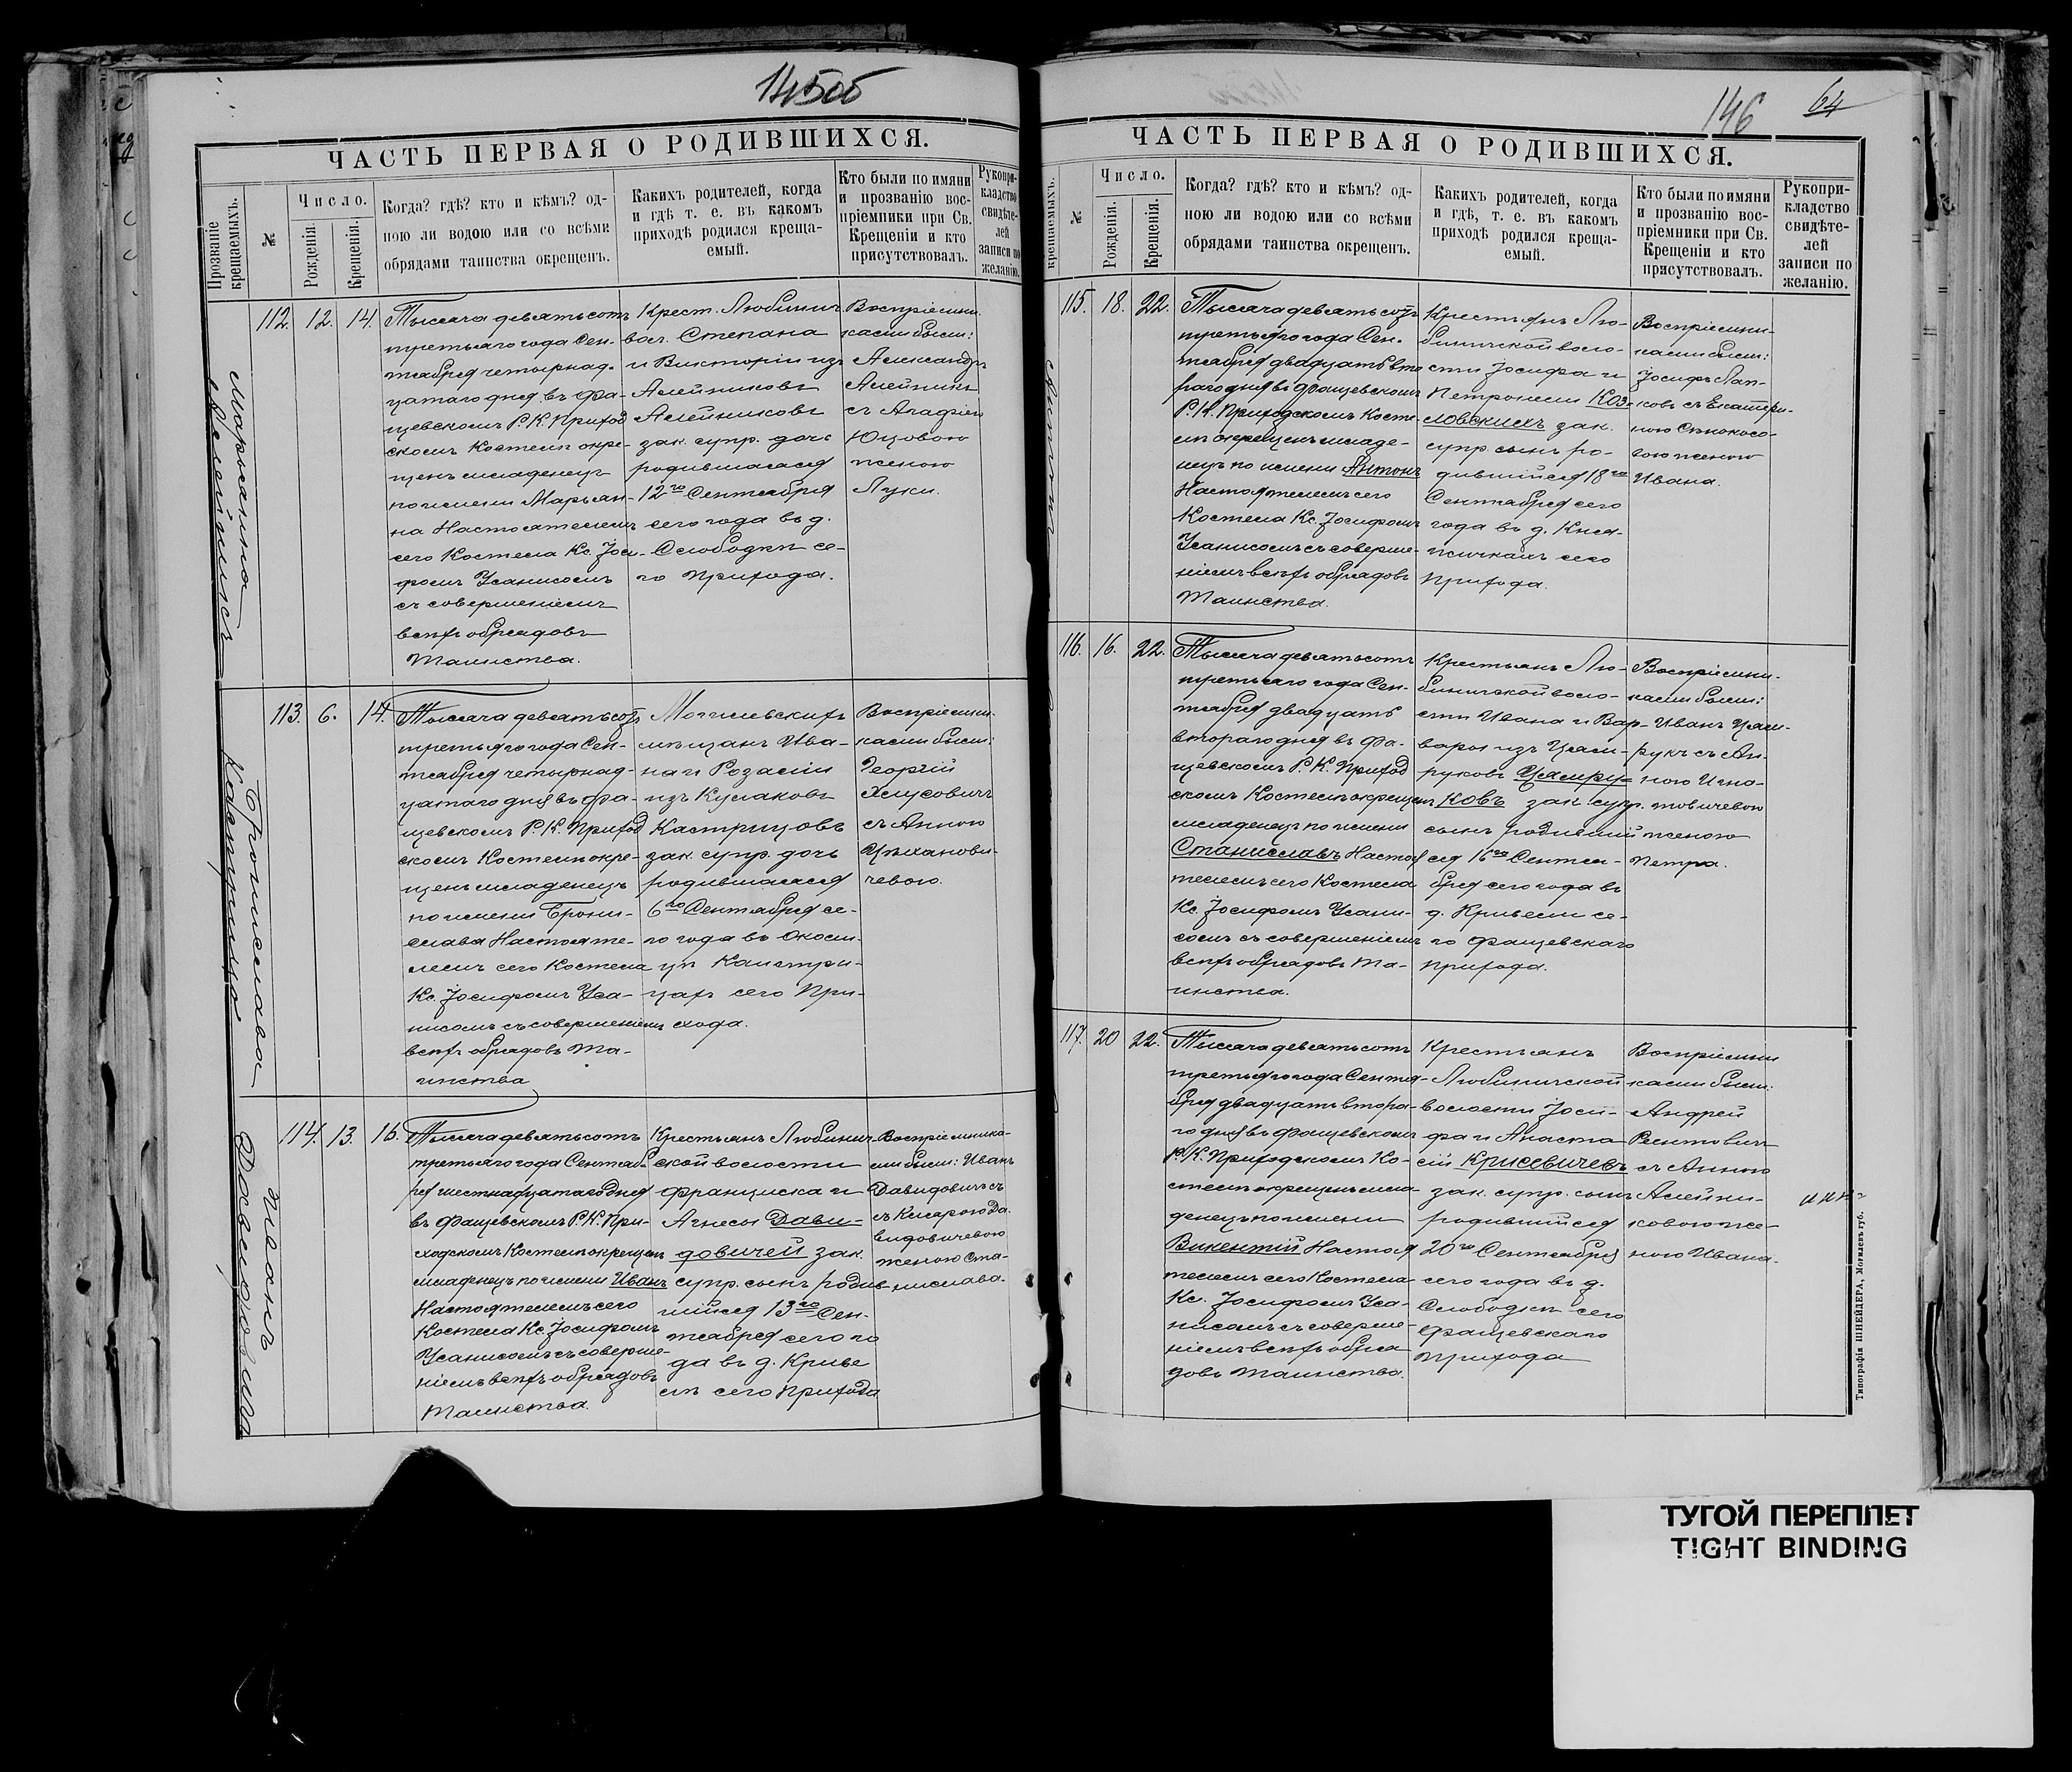 145об
ЧАСТЬ ПЕРВАЯ О РОДИВШИХСЯ.
Прозваніе крещаемыхъ.
№
Число.
Рожденія.
Крещенія.
Когда? гдѣ? кто и кѣмъ? од-
ною ли водою или со всѣми
обрядами таинства окрещенъ.
Какихъ родителей, когда
и гдѣ т. е. въ какомъ
приходѣ родился креща-
емый.
Кто были по имяни
и прозванію вос-
пріемники при Св.
Крещеніи и кто
присутствовалъ.
Рукопри-
кладство
свидѣте-
лей
записи по
желанію.
Марьянна
112. 12. 14.
Тысяча девятьсотъ
третьяго года Сен-
тября четырнад-
цатаго дня въ Фа-
щевскомъ Р. К. Приход
скомъ Костелѣ окре-
щенъ младенецъ
по имени Марьян-
на Настоятелемъ
сего Костела Кс. Іоси-
фомъ Усанисомъ
съ совершеніемъ
всѣхъ обрядовъ
Таинства.
Крест. Любинич
вол. Степана
и Викторіи изъ
Алейниковъ
Алейниковъ
зак. супр. дочь
родившаяся
12го Сентября
сего года въ д.
Слободкѣ се-
го Прихода.
Воспріемни-
ками были:
Александръ
Алейникъ
съ Агафіею
Юцовою
женою
Луки.
Бронислава
113. 6. 14.
Тысяча девятьсотъ
третьяго года Сен-
тября четырнад-
цатаго дня въ Фа-
щевскомъ Р. К. Приход
скомъ Костелѣ окре-
щенъ младенецъ
по имени Брони-
слава Настояте-
лемъ сего Костела
Кс. Іосифомъ Уса-
нисомъ съ совершеніемъ
всѣхъ обрядовъ Та-
инства
Могилевскихъ
мѣщанъ Ива-
на и Розаліи
изъ Кулаковъ
Кастрицовъ
зак. супр. дочь
родившаяся
6го Сентября се-
го года въ Околи-
цѣ Кастри-
цахъ сего При-
хода.
Воспріемни-
ками были:
Георгій
Хлусовичъ
съ Анною
Цѣханови-
чевою.
Иванъ
114. 13. 16.
Тысяча девятьсотъ
третьяго года Сентяб-
ря шестнадцатаго дня
въ Фащевскомъ Р. К. При-
ходскомъ Костелѣ окрещенъ
младенецъ по имени Иванъ
Настоятелемъ сего
Костела Кс. Іосифомъ
Усанисомъ съ соверше-
ніемъ всѣхъ обрядовъ
Таинства.
Крестьянъ Любинич-
ской волости
Франциска и
Агнесы Дави-
довичей зак.
супр. сынъ родив-
шійся 13го Сен-
тября сего го
да въ д. Криве
лѣ сего Прихода
Воспріемника-
ми были: Иванъ
Давидовичъ съ
съ Кларою Да-
видовичевою
женою Ста-
нислава.
146
64
ЧАСТЬ ПЕРВАЯ О РОДИВШИХСЯ.
крещаемыхъ.
№
Число.
Рожденія.
Крещенія.
Когда? гдѣ? кто и кѣмъ? од-
ною ли водою или со всѣми
обрядами таинства окрещенъ.
Какихъ родителей, когда
и гдѣ, т. е. въ какомъ
приходѣ родился креща-
емый.
Кто были по имяни
и прозванію вос-
пріемники при Св.
Крещеніи и кто
присутствовалъ.
Рукопри-
кладство
свидѣте-
лей
записи по
желанію.
115. 18. 22.
Тысяча девятьсотъ
третьяго года Сен-
тября двадцать вто
раго дня въ Фащевскомъ
Р. К. Приходскомъ Косте-
лѣ окрещенъ младе-
нецъ по имени Антонъ
Настоятелемъ сего
Костела Кс. Іосифомъ
Усанисомъ съ соверше-
ніемъ всѣхъ обрядовъ
Таинства.
Крестьянъ Лю-
биничской воло-
сти Іосифа и
Петронели Коз-
ловскихъ зак.
супр. сынъ ро-
дившійся 18го
Сентября сего
года въ д. Кня-
жичкахъ сего
Прихода.
Воспріемни-
ками были:
Іосифъ Лап-
ковъ съ Екатери-
ною Сѣнокосо-
вою женою
Ивана.
116. 16. 22.
Тысяча девятьсотъ
третьяго года Сен-
тября двадцать
втораго дня въ Фа-
щевскомъ Р. К. Приход
скомъ Костелѣ окрещенъ
младенецъ по имени
Станиславъ Настоя
телемъ сего Костела
Кс. Іосифомъ Усани-
сомъ съ совершеніемъ
всѣхъ обрядовъ Та-
инства.
Крестьянъ Лю-
биничской воло-
сти Ивана и Вар-
вары изъ Цам-
руковъ Цамру-
ковъ зак. супр.
сынъ родивший
ся 16го Сентя-
бря сего года въ
д. Кривели се-
го Фащевскаго
Прихода.
Воспріемни-
ками были:
Иванъ Цам-
рукъ съ Ан-
ною Игна-
товичевою
женою
Петра.
117. 20 22.
Тысяча девятьсотъ
третьяго года Сентя-
бря двадцать втора-
го дня въ Фащевскомъ
Р. К. Приходскомъ Ко-
стелѣ окрещенъ мла-
денецъ по имени
Викентій Настоя
телемъ сего Костела
Кс. Іосифомъ Уса-
нисомъ съ соверше-
ніемъ всѣхъ обря
довъ Таинства.
Крестьянъ
Любиничской
волости Іоси-
фа и Анаста
сіи Крисевичевъ
зак. супр. сынъ
родившійся
20го Сентября
сего года въ д.
Слободкѣ сего
Фащевскаго
Прихода
Воспріемни
ками были:
Андрей
съ Анною
Алейни-
ковою же-
ною Ивана.
Типографія ШНЕЙДЕРА, Могилевъ губ.
ТУГОЙ ПЕРЕПЛЕТ
TIGHT BINDING